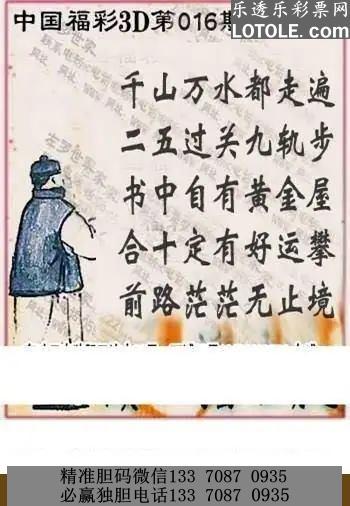 乐透乐彩票网
中国福彩3D第016期
WWW.LOTOLE.COM
千山万水都走遍
二五过关九轨步
书中自有黄金屋
合十定有好运攀
前路茫茫无止境
精准胆码微信133 7087 0935
必赢独胆电话133 7087 0935